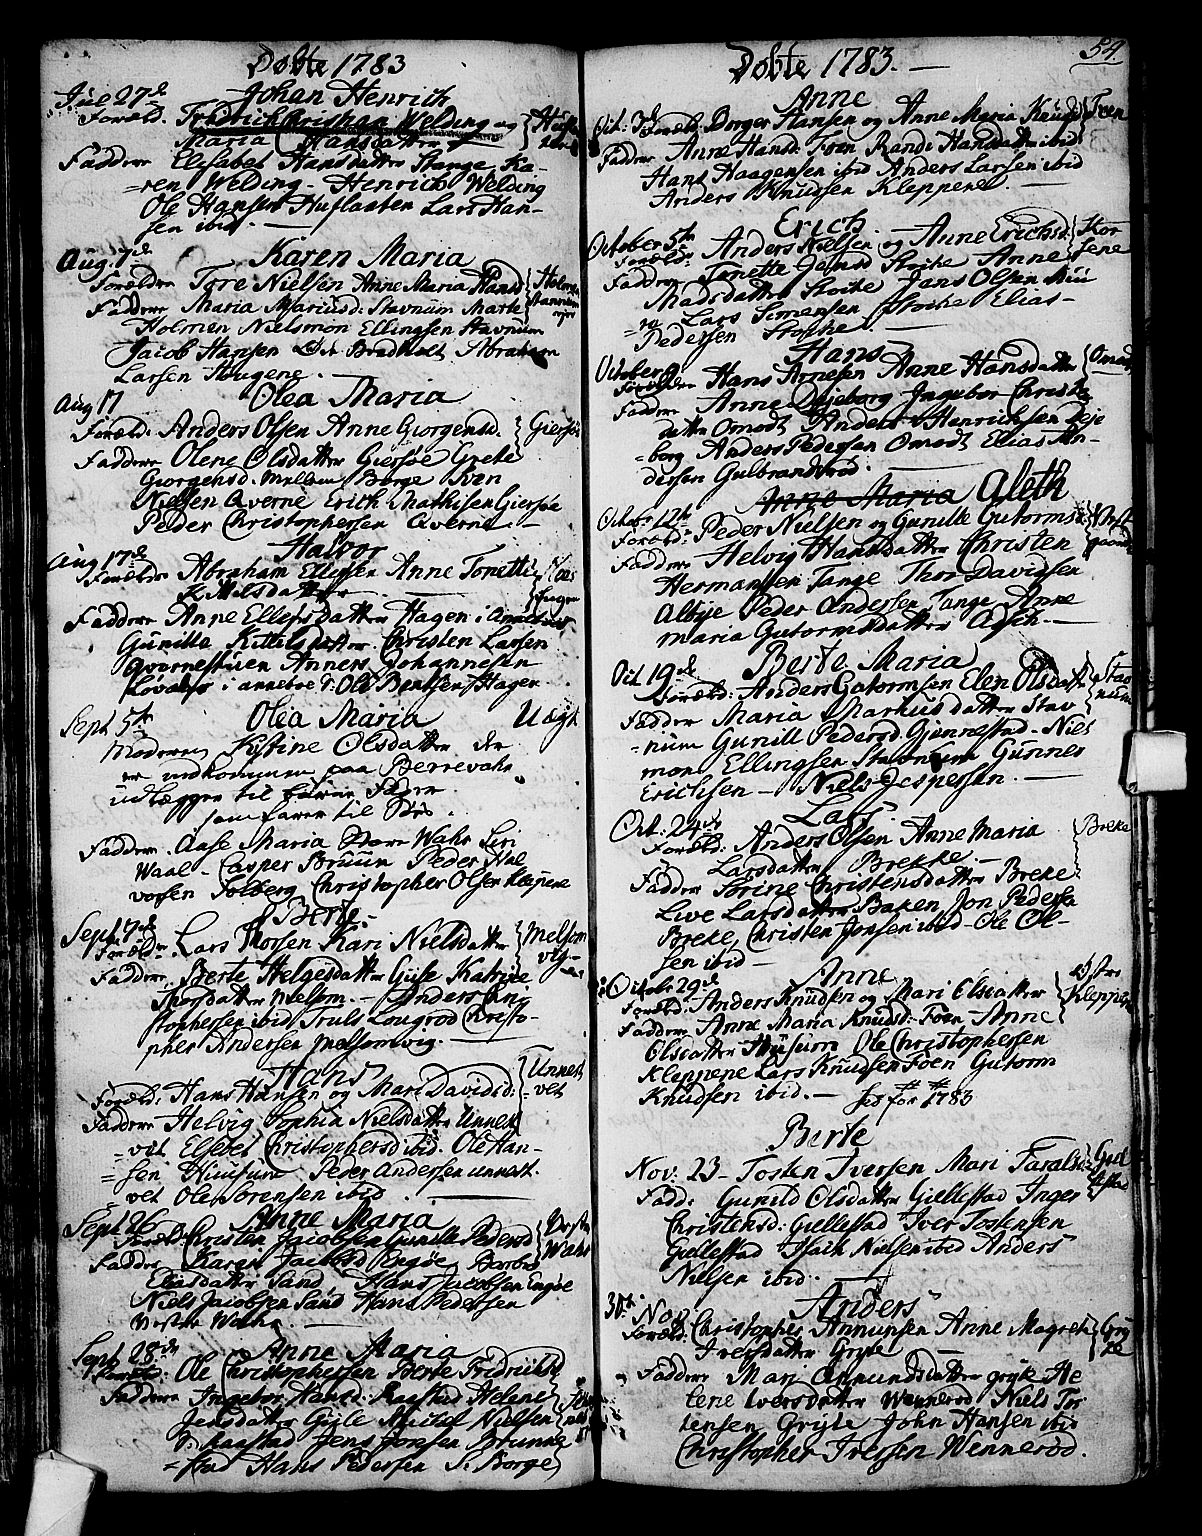 Døbte 1783
Jul 27de Johan Henrich
Foræld. Fridrich Christian Welding og
Maria Hansdatter
Faddere Elisabet Hansdatter Stange Ka-
=ren Welding - Henrich Welding
Ole Hansen Huflaaten Lars Han-
sen ibid. -
Aug. 7de Karen Maria
Forældre Tore Nielsen Anne Maria Hansd
Faddere Maria Mariusd: Stavnum Marte
Holmen Nielsmon Ellingsen Stavnum
Jacob Hansen Bradholt Abraham
Larsen Hougene.
Aug 17 Olea Maria
Foræld: Anders Olsen Anne Giorgensd. Giersøe
Faddere Olene Olsdatter Giersøe Grete
Giorgensd: Mellem Borge Sven
Nielsen Qverne Erich Mathisen Giersøe
Peder Christophersen Qverne -
Aug 17de Halvor
Forældre Abraham Ellefsen Anne Tonette
Kittilsdatter
Faddere Anne Ellefsdatter Hagen i
Gunilla Kittelsdatter Christen Larsen
Qvernestuen Anners Johannesen
Løvaas i anneboe Ole Bentsen Hagen
Sept 5te Olea Maria Uægte
Moderen Kistine Olsdatter der
er indkommen paa Berrevahr
udlegger til Barne Fader
som farer til Søs.
Faddere Aase Maria Store Wahr Siri
Waal - Casper Bruun Peder Hal
vorsen Solberg Christopher Olsen Kleppene
Berte.
Sept 7de
Foræld. Lars Thorsen Kari Nielsdatter Melsom
vig
Faddere Berte Helgesdatter Guse Katrine
Thorsdatter Melsom. - Anders Chri
stophersen ibid Truls Lougrod Christo-
pher Andersen Melsomvig. -
Hans
Foræld: Hans Hansen og Mari Davidsd: Unnest
vet
Faddere Helvig Sophia Nielsdatter Unnest
=vet Elsebet Christophersd ibid. Ole Han-
=sen Huusum Peder Andersen Unnest
vet Ole Sørensen ibid
Sept. 26 Anne Maria
Foræld. Christen Jacobsen Gunille Pedersd Vestre
Wahr
Faddere Karen Jacobsd Engøe Barbro
Eliasdatter Sand Hans Jacobsen Engøe
Niels Jacobsen Sand Hans Pedersen
Vestre Wahr. -
Sept 28de Anne Maria
Foræld: Ole Christophersen Berte Fridrichsd
Faddere Ingebor Hansd. Raastad Helene
Jensdatter Gryte Michel Nielsen
Raastad Jens Jonsen Brunne
=stad Hans Pedersen S: Borge
54.
Døbte 1783. -
Anne
Oct: 3de Foræld: Borger Hansen og Anne Maria Knudsd Foen
Faddere Anne Hansd: Foen Randi Hansdatter ibid
Hans Haagensen ibid Anders Larsen ibid
Anders Knudsen Kleppene. -
Erich.
October 5te
Forældr: Anders Nielsen og Anne Erichsd.
Faddere Tonette Jensd Stoike Anne
Madsdatter Stoike Jens Olsen Mui
=re Lars Simensen Elias-
Pedersen
Hans
October 9
Forældre Hans Arnesen Anne Hansdatter Omodt
Faddere Anne Dejeborg Ingebor Christe
datter Omodt Anders Henrichsen Deje
=borg Anders Pedersen Omodt Elias An-
dersen Gulbrandsrod.
Anne Maria Aleth
Octobr 12te
Foræld: Peder Nielsen og Gunille Gutormsd
Faddere Helvig Hansdatter Christen
Hermansen Tange Thor Davidsen
Albye Peder Andersen Tange Anne
Maria Gutormsdatter Asch. -
Oct 19de Berte Maria
Foræld: Anders Gutormsen Elen Olsdatt: Stav
num
Faddere Maria Markusdatter Stav
=num Gunild Pedersd. Gjønnestad - Niels
mon Ellingsen Stavnum Gunner
Erichsen - Niels Jespersen. -
Lars
Oct: 24de
Foræld: Anders Olsen Anne Maria Breke
Larsdatter Brekke. -
Faddere Sørine Christensdatter Breke
Live Larsdatter Baken Jon Pederse
Breke Christen Jonsen ibid - Ole Ol-
sen ibid -
Anne
October 29de
Foræld: Anders Knudsen og Mari Olsdatter Østre
Kleppene
Faddere Anne Maria Knudsd: Foen - Anne
Olsdatter Huusum Ole Christophersen
Kleppene Lars Knudsen Foen Gutorm
Knudsen ibid. - 1783
Berte
Nov: 23 - Tosten Iversen Mari Taralsd. Giel
lestad
Fadd: Gunild Olsdatter Giellestad Inger
Christensd: Giellestad Iver Tostensen
Giellestad Isach Nielsen ibid Anders
Nielsen ibid. -
30te Nov Anders
Foræld: Christopher Annunsen Anne Magrete Gry
te
Iversdatter Gryte
Faddere Mari Annundsdatter Gryte He
lene Iversdatter Wennerod Niels To
stensen Gryte John Hansen ibid
Christopher Iversen Wennerød.